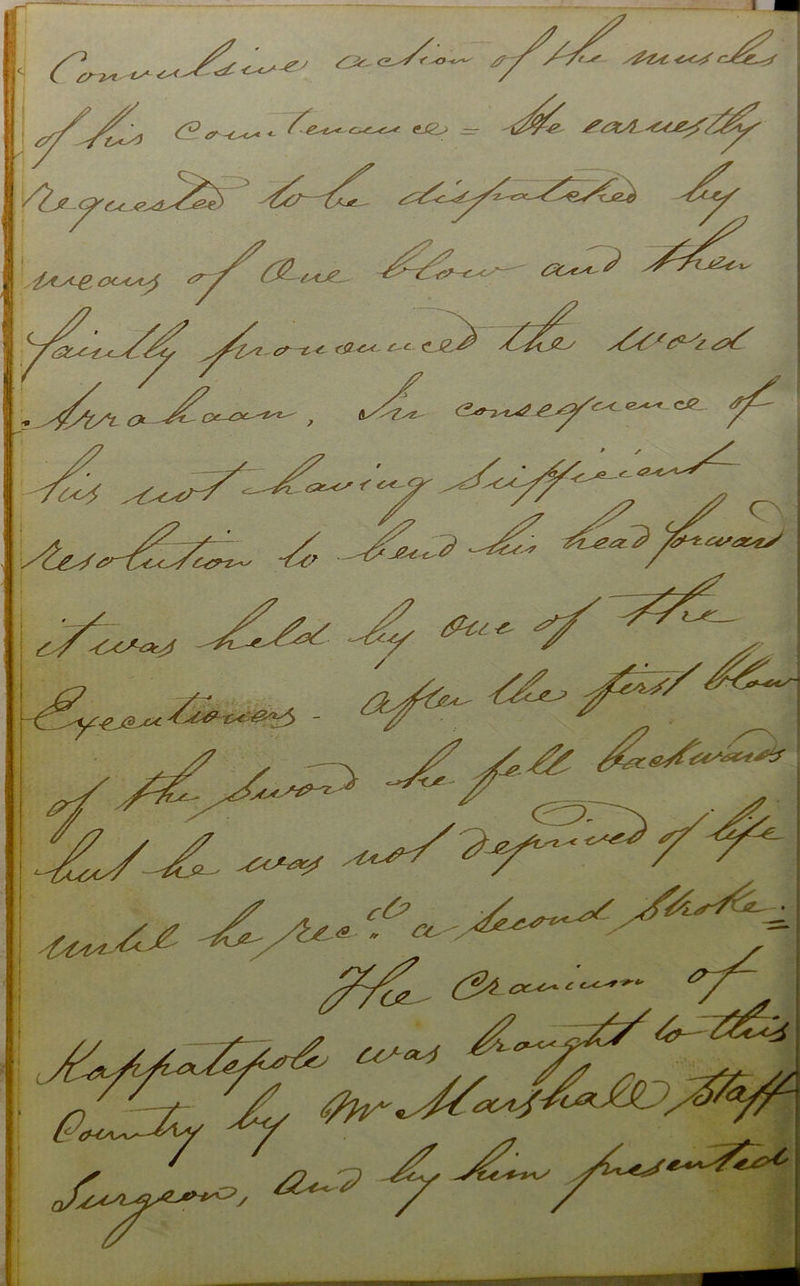 Convulsive action of the muscles
of his countenance = He earnestly
requested to be dispatched by
means of One blow and then
faintly pronounced the word
Arrahaan, In consequence of
his not having sufficient
resolution to bend his head forward
it was held by one of the
Executioners - After the first blow
of the Sword he fell backwards
but he was not deprived of life
until he recd. a second stroke =
The Cranium of
Kappatepole was brought to this
Country by Mr Marshall Staff
Surgeon, And by him presented